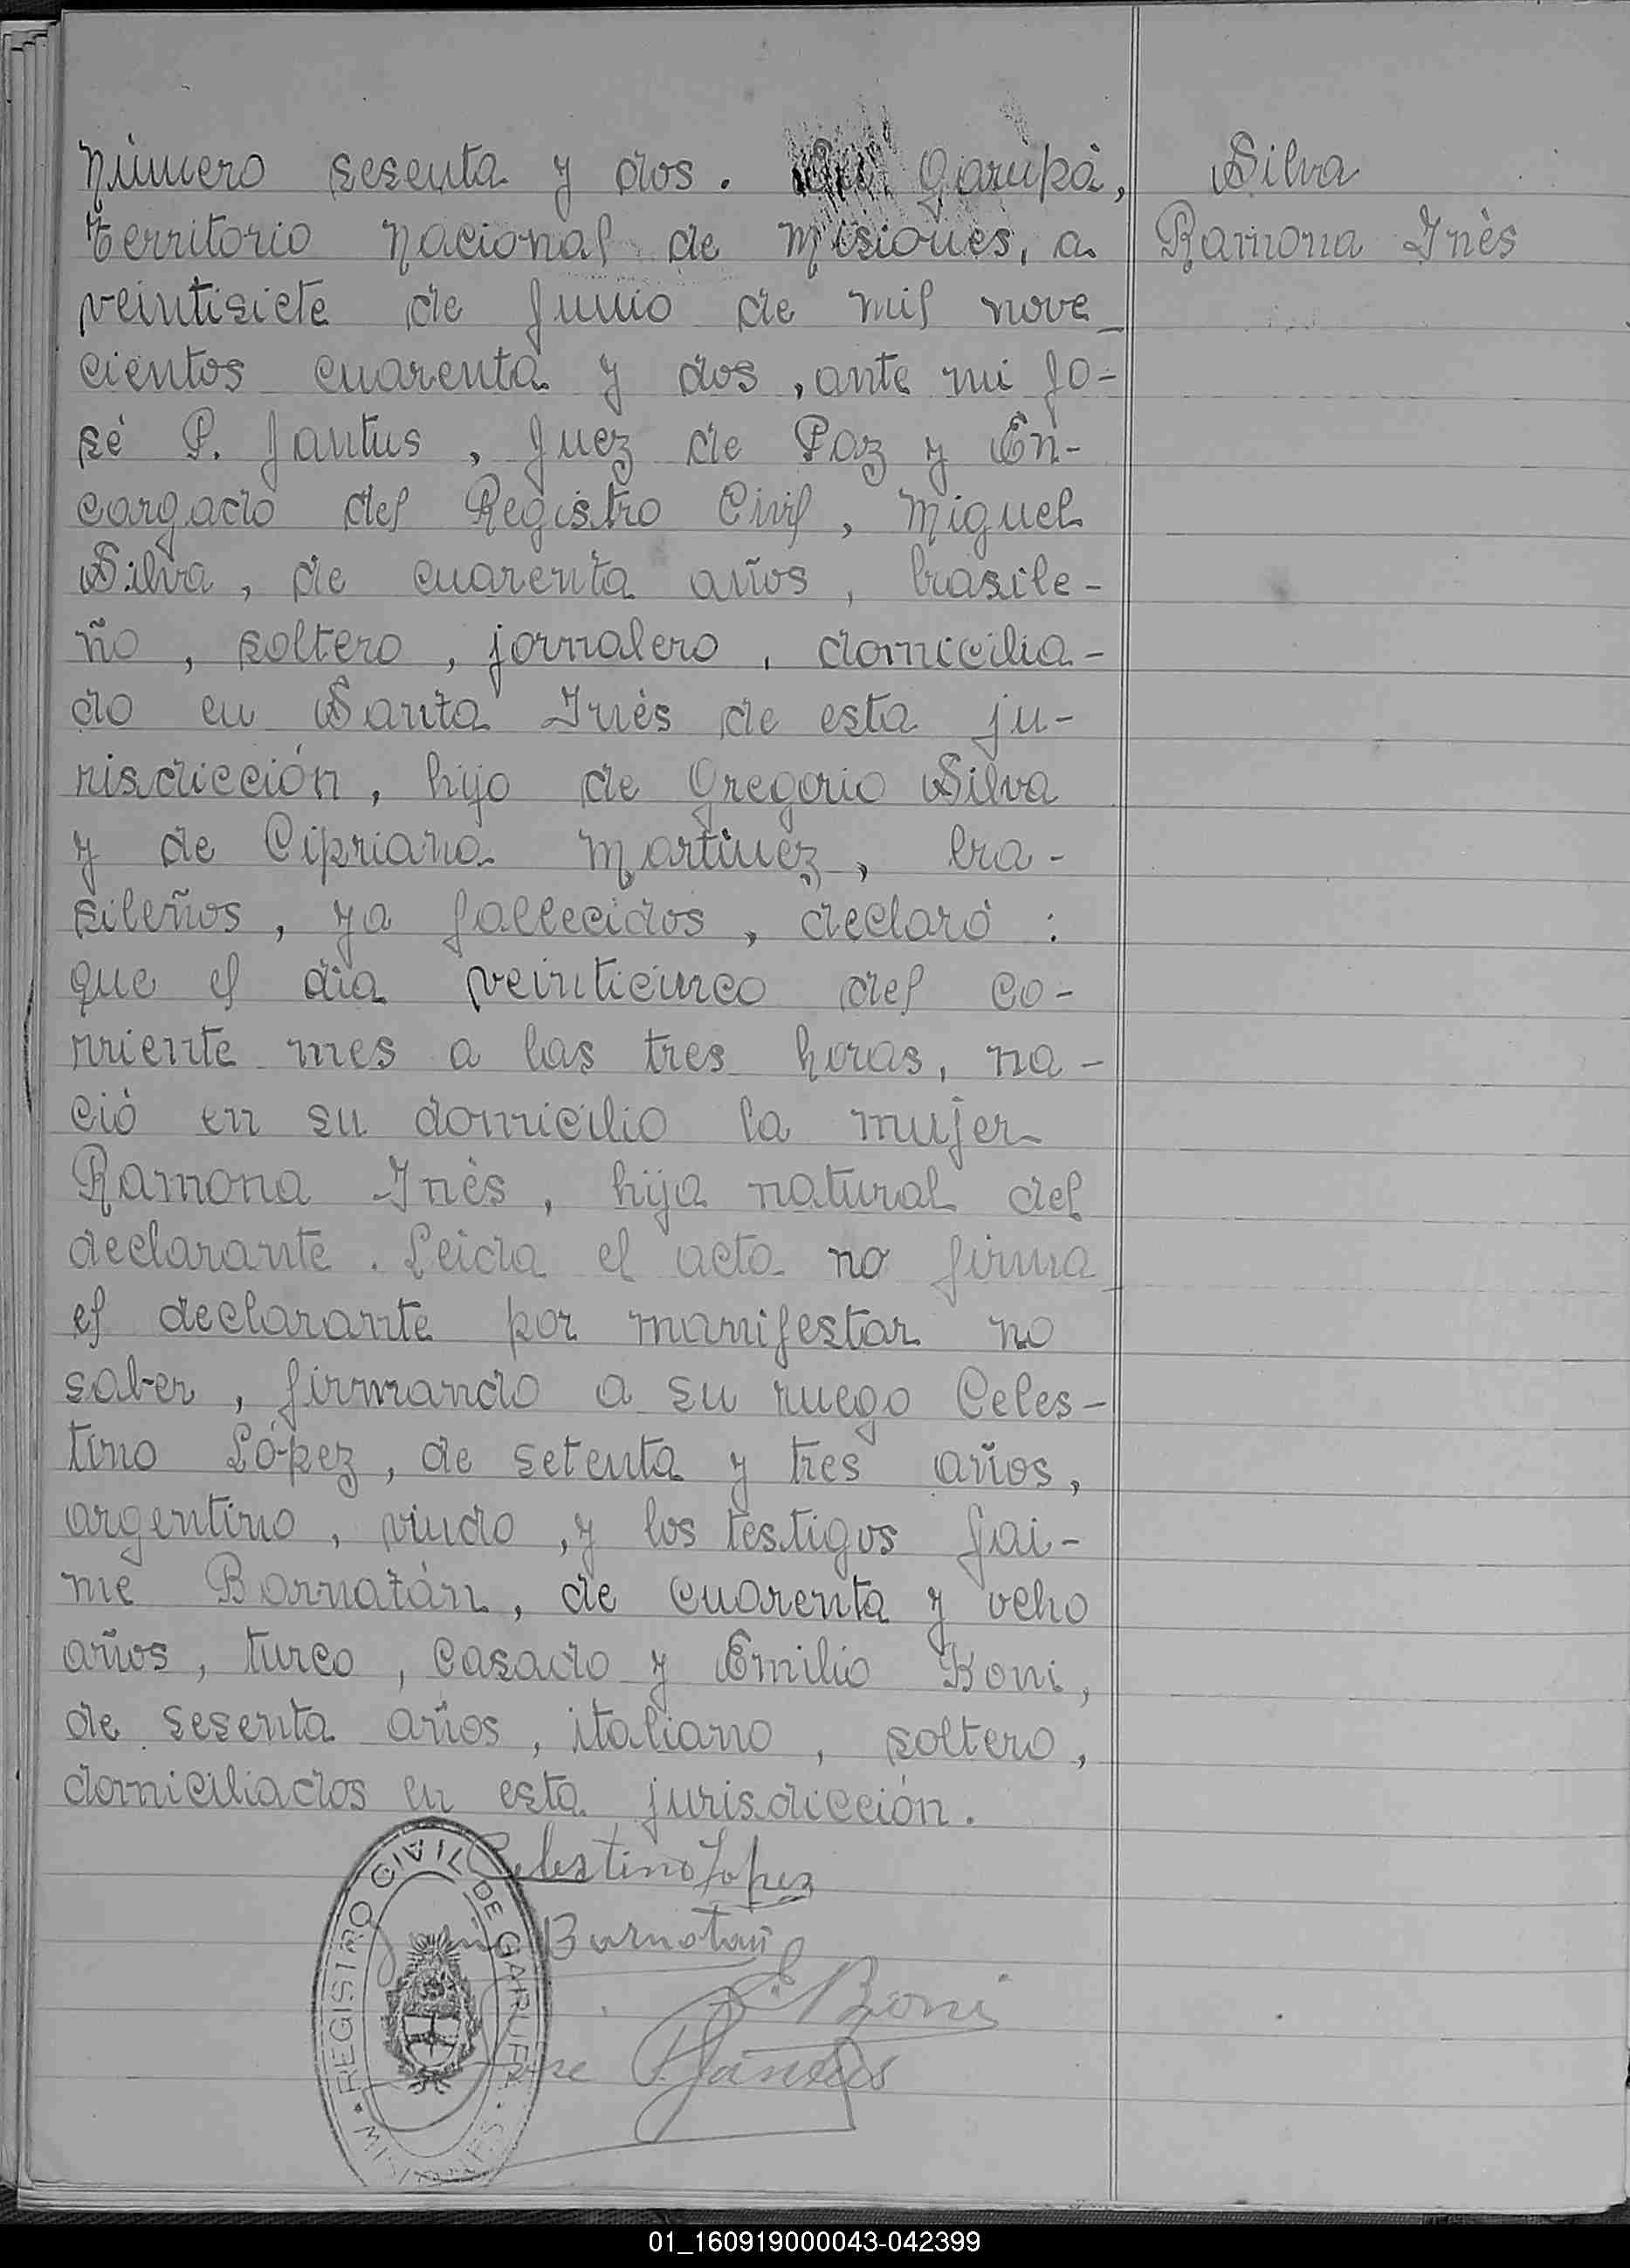 Número sesenta y dos. En Garupá,
territorio Nacional de Misiones, a
veintisiete de Junio de mil nove_
cientos cuarenta y dos, ante mi Jo-
sé P. Jantus, Juez de Paz y En-
cargado del Registro Civil, Miguel
Silva, de cuarenta años, brasile-
ño, soltero, jornalero, domicilia-
do en Santa Inés de esta ju-
risdicción, hijo de Gregorio Silva
y de Cipriana Martinez, bra-
sileños, ya fallecidos, declaró:
que el dia veinticinco del co-
rriente mes a las tres horas, na-
ció en su domicilio la mujer
Ramona Inés, hija natural del
declarante. Leida el acta no firma
el declarante por manifestar no
saber, firmando a su ruego Celes-
tino López, de setenta y tres años,
argentino, viudo, y los testigos Jai-
me Barnatán, de cuarenta y ocho
años, turco, casado y Emilio Boni,
de sesenta años, italiano, soltero,
domiciliados en esta jurisdicción.
Celestino Lopez
Barnatan
E. Boni
Jose P. Jantus
REGISTRO CIVIL DE GARUPA
MISIONES
Silva
Ramona Inés
01_160919000043-042399